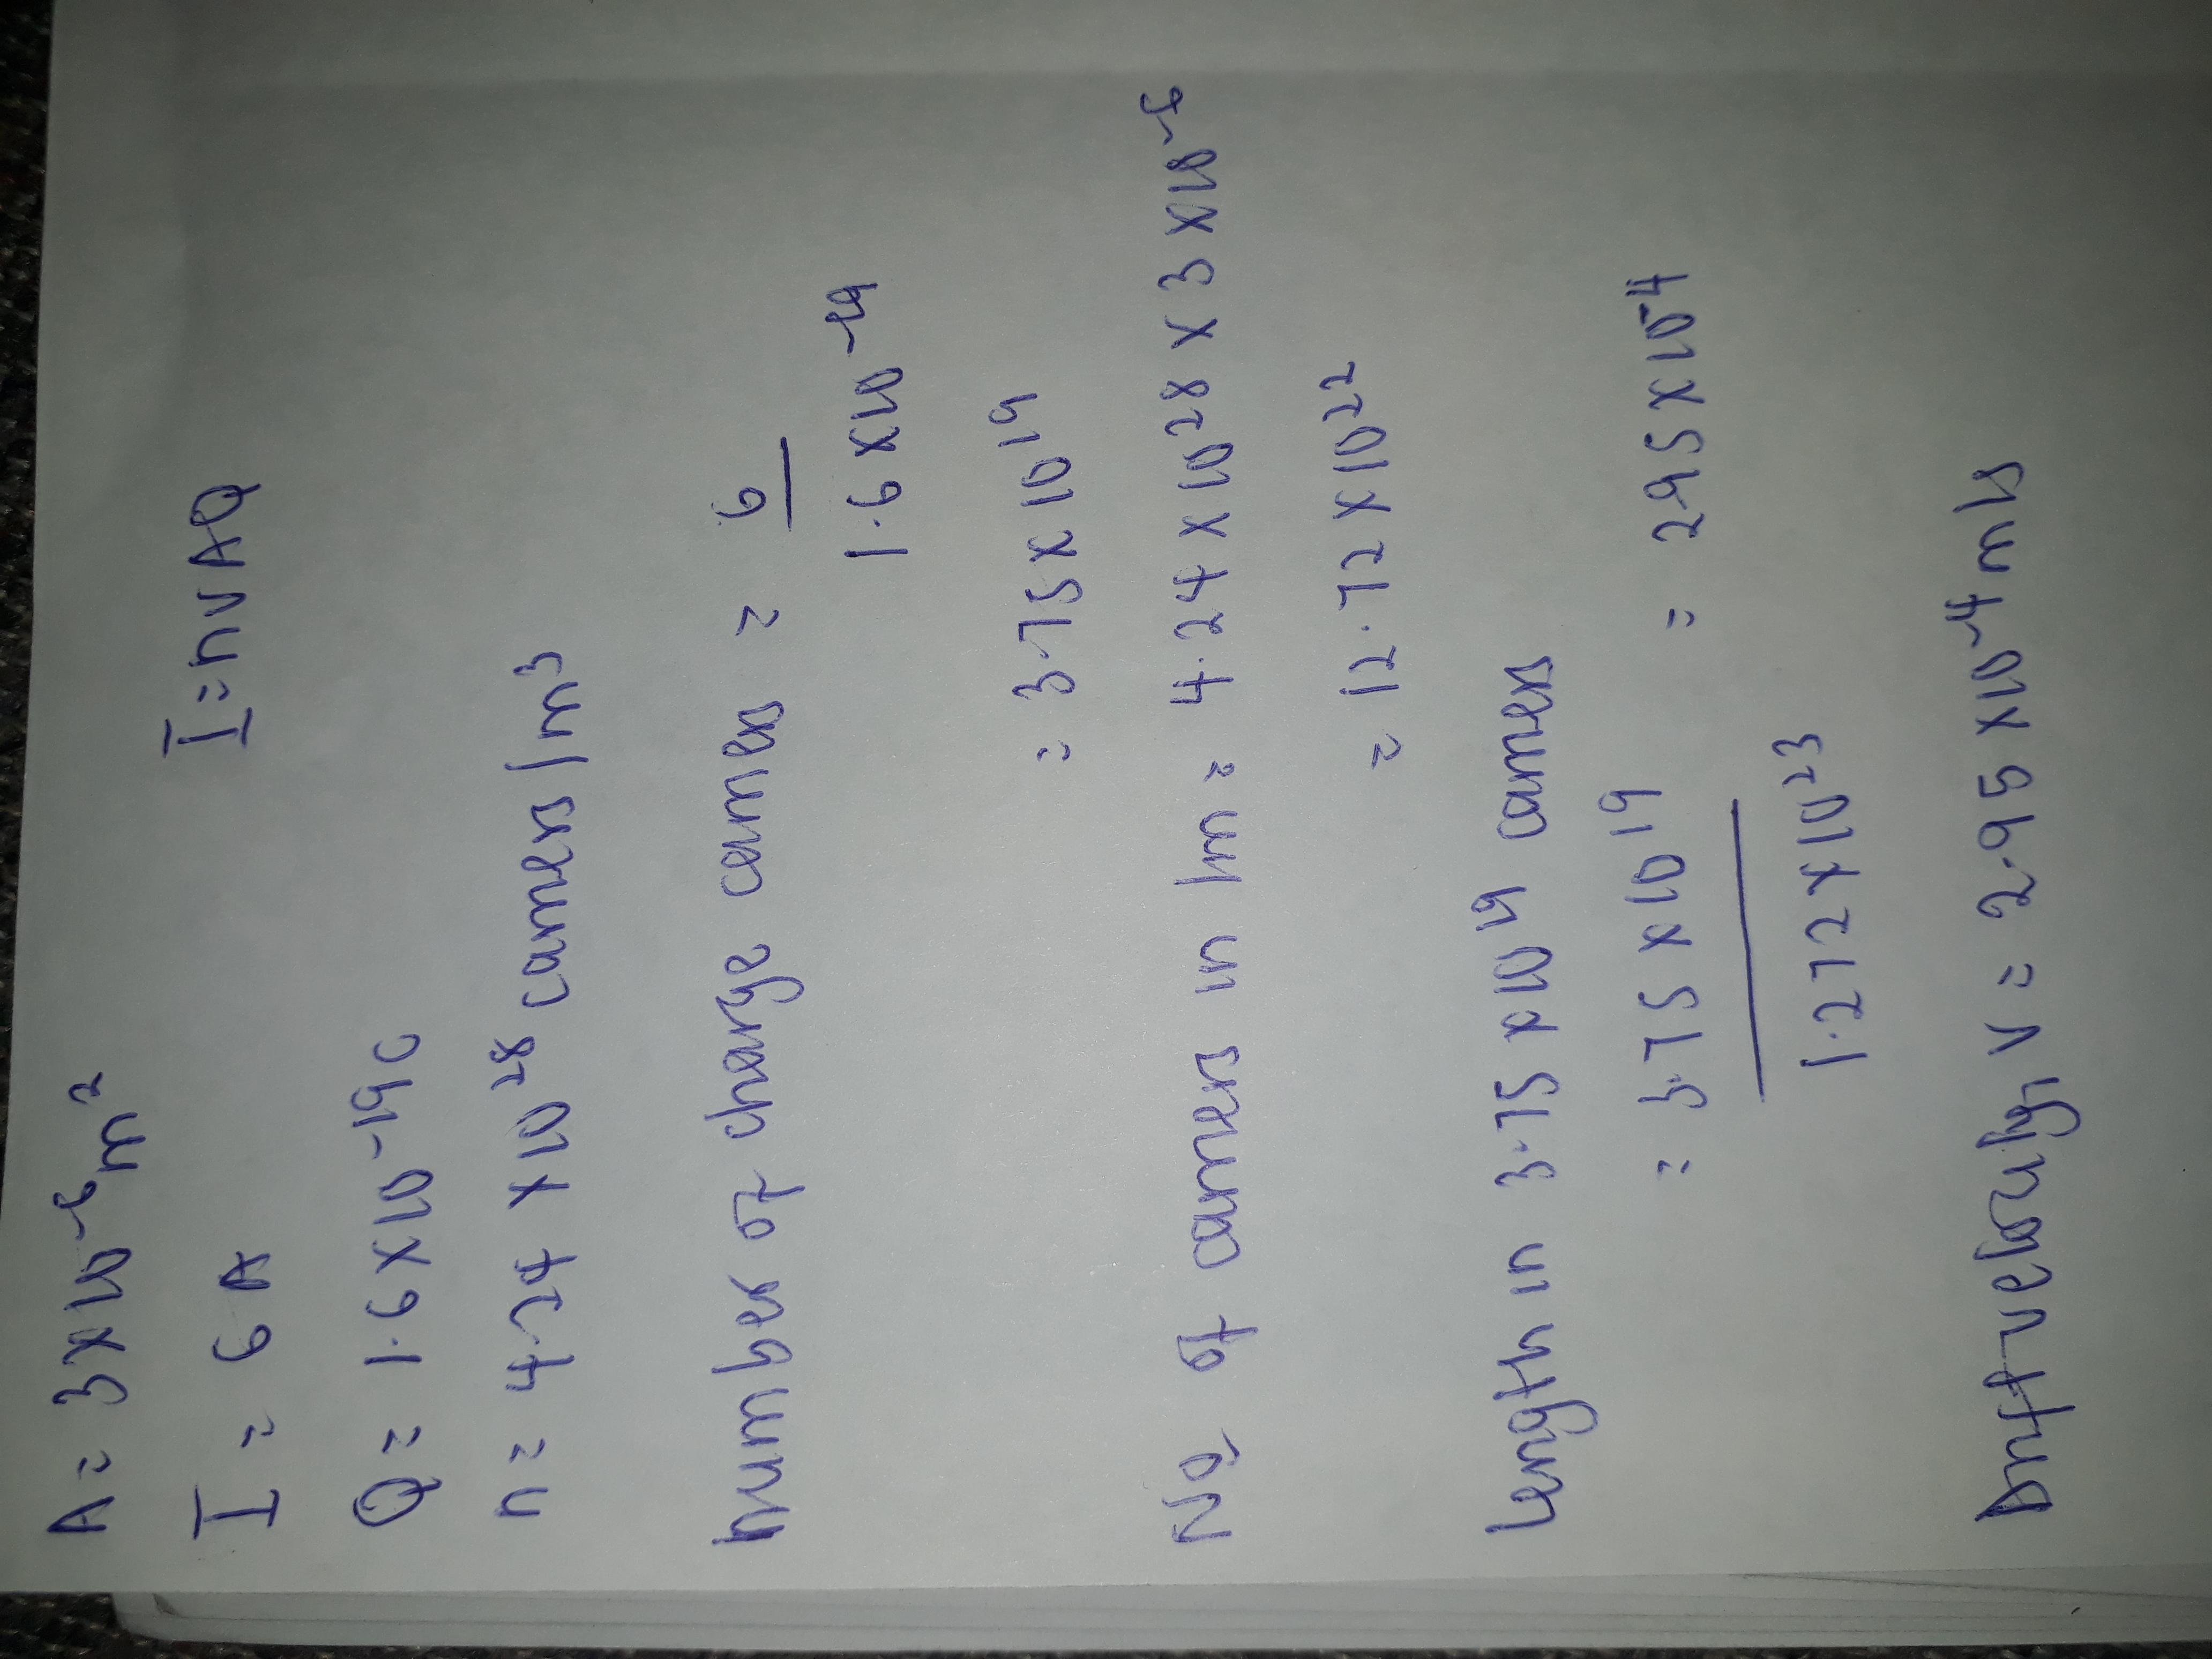 A = 3 x 10⁻⁶ m²
I = 6 A I = nvAQ
Q = 1.6 x 10⁻¹⁹ C
n = 4.24 x 10²⁸ carriers / m³
Number of charge carries = 6
1.6 x 10⁻¹⁹
= 3.75 x 10¹⁹
No of carriers in 1m = 4.24 x 10²⁸ x 3 x 10⁻⁶
= 12.72 x 10²²
Length in 3.75 x 10¹⁹ carriers
= 3.75 x 10¹⁹ = 2.95 x 10⁻⁴
1.272 x 10²³
Drift velocity, v = 2.95 x 10⁻⁴ m/s